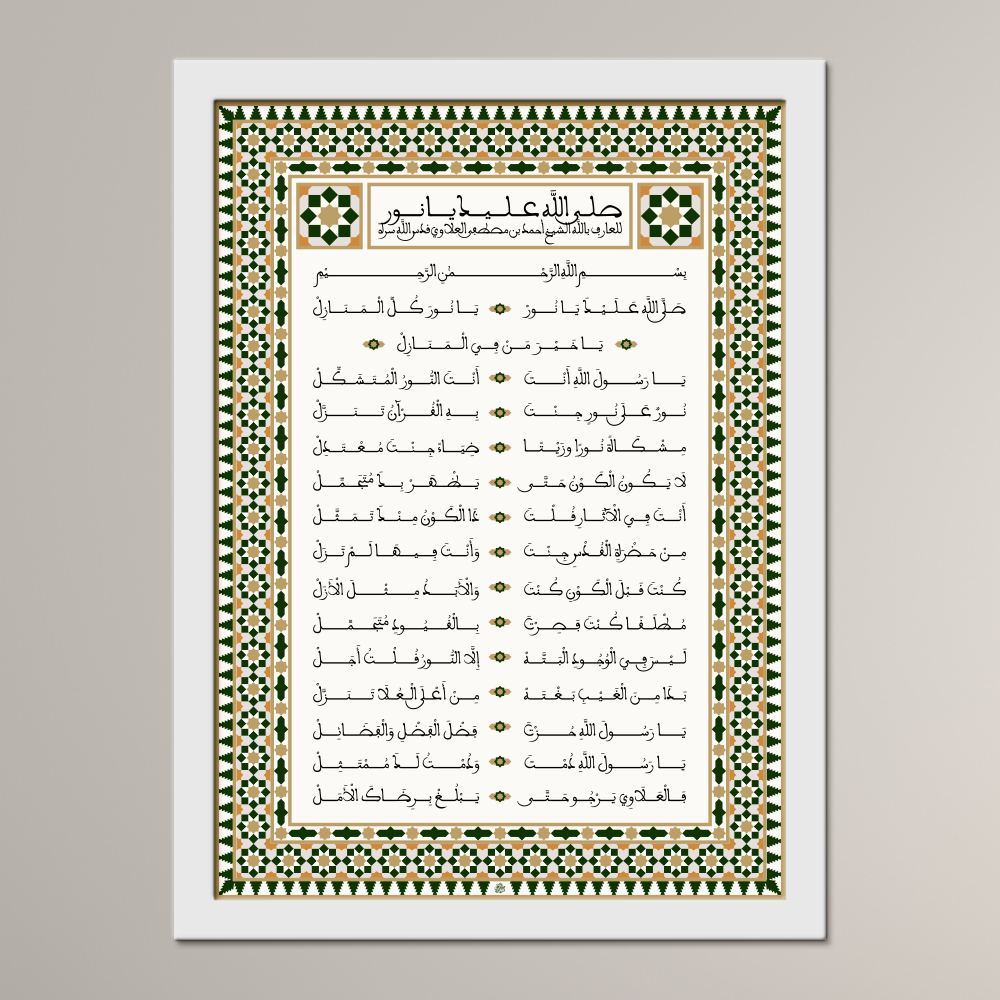 صلى الله عليك يا نور
للعارف بالله الشيخ أحمد بن مصطفى العلاوي قدس الله سره
بِسْمِ اللَّهِ الرَّحْمَٰنِ الرَّحِيمِ
صَلَّى اللَّه عَلَيْكَ يَا نُورْ يَا نُورَ كُلِّ الْمَنَازِلْ
يَا خَيْرَ مَنْ فِي الْمَنَازِلْ
يَا رَسُولَ اللَّهِ أَنْتَ أَنْتَ النُّورُ الْمُتَشَكِّلْ
نُورٌ عَلَى نُورٍ جِئْتَ بِهِ الْقُرْآنُ تَنَزَّلْ
مِشْكَاةً نُورًا وَزَيْتًا ضِيَاءً جِئْتَ مُعْتَدِلْ
لَا يَكُونُ الْكَوْنُ حَتَّى يَظْهَرْ بِكَ مُتَجَمِّلْ
أَنْتَ فِي الْآثَارِ قُلْتَ ذَا الْكَوْنُ مِنْكَ تَمَثَّلْ
مِنْ حَضْرَةِ الْقُدْسِ جِئْتَ وَأَنْتَ فِيهَا لَمْ تَزَلْ
كُنْتَ قَبْلَ الْكَوْنِ كُنْتَ وَالْأَبَدُ مِثْلَ الْأَزَلْ
مُطْلَقًا كُنْتَ فَصِرْتَ بِالْقُيُودِ مُتَجَمِّلْ
لَيْسَ فِي الْوُجُودِ الْبَتَّةَ إِلَّا النُّورُ قُلْتُ أَجَلْ
بَدَا مِنَ الْغَيْبِ بَغْتَةً مِنْ أَعْلَى الْعُلَا تَنَزَّلْ
يَا رَسُولَ اللَّهِ حُزْتَ فَضْلَ الْفَضْلِ وَالْفَضَائِلْ
يَا رَسُولَ اللَّهِ دُمْتَ وَدُمْتُ لَكَ مُمْتَثِلْ
فَالْعَلَاوِي يَرْجُو حَتَّى يَبْلُغْ بِرِضَاكَ الْأَمَلْ